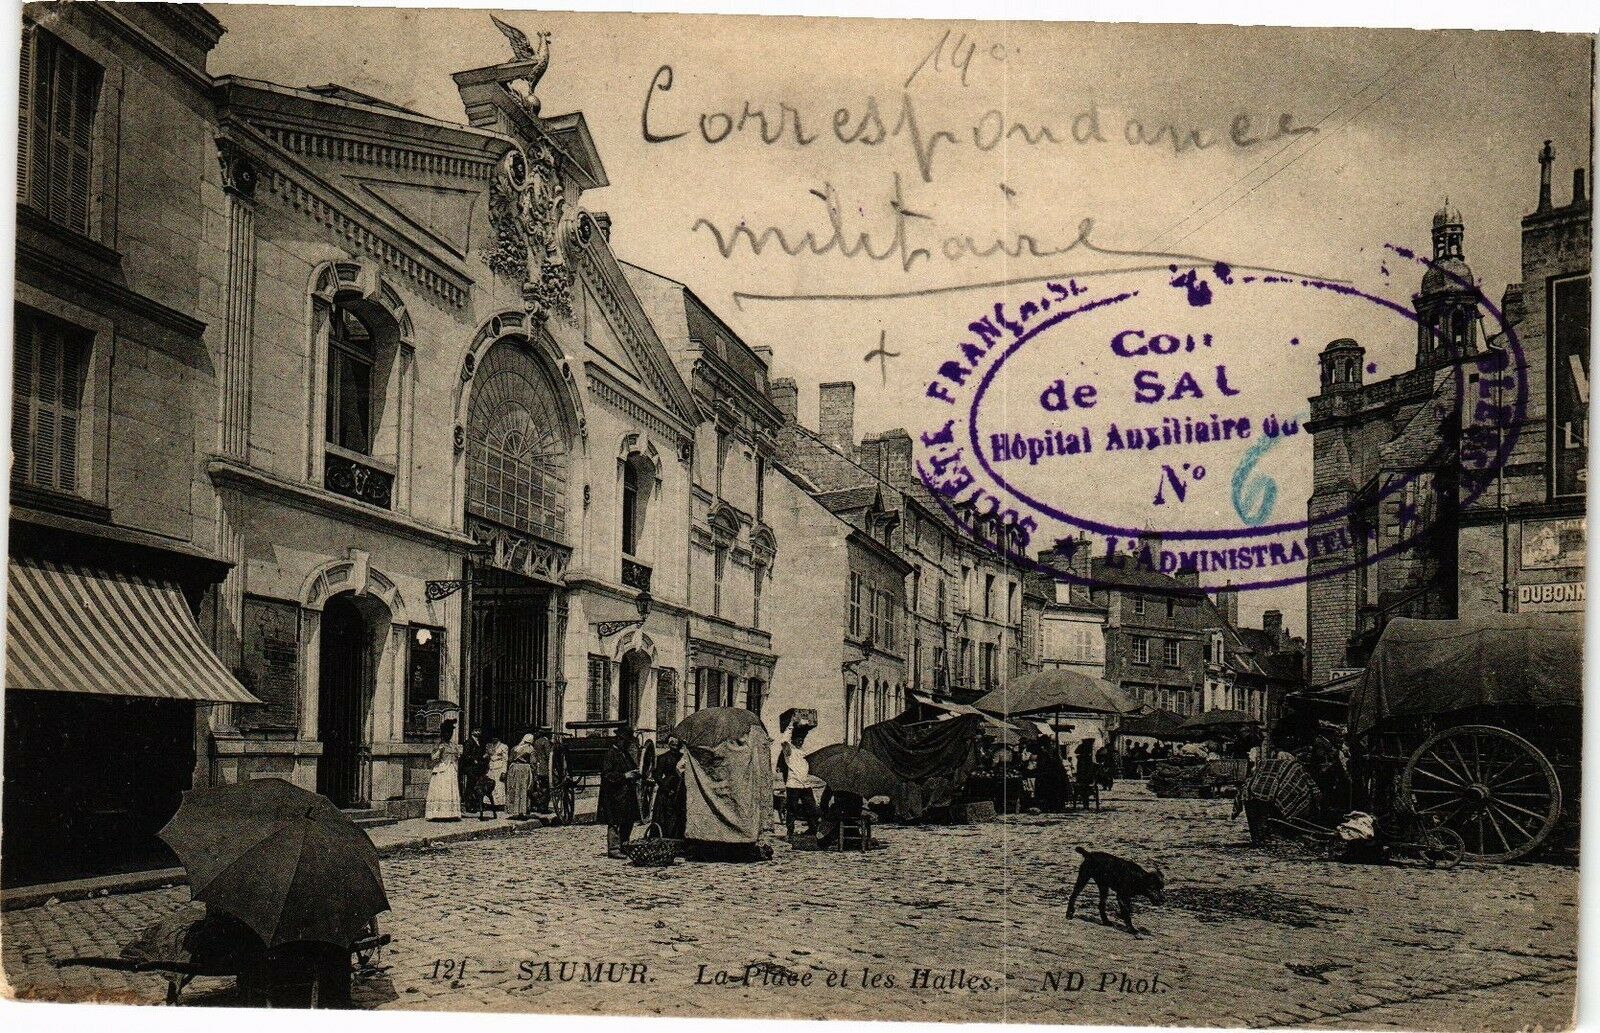 14e
Correspondance
militaire
+
SOCIÉTÉ FRANÇAISE
BLESSÉS
Con
de SAU
Hôpital Auxiliaire du
N° 6
L'ADMINISTRATEUR
DUBONN
121 — SAUMUR. La Place et les Halles. ND Phot.